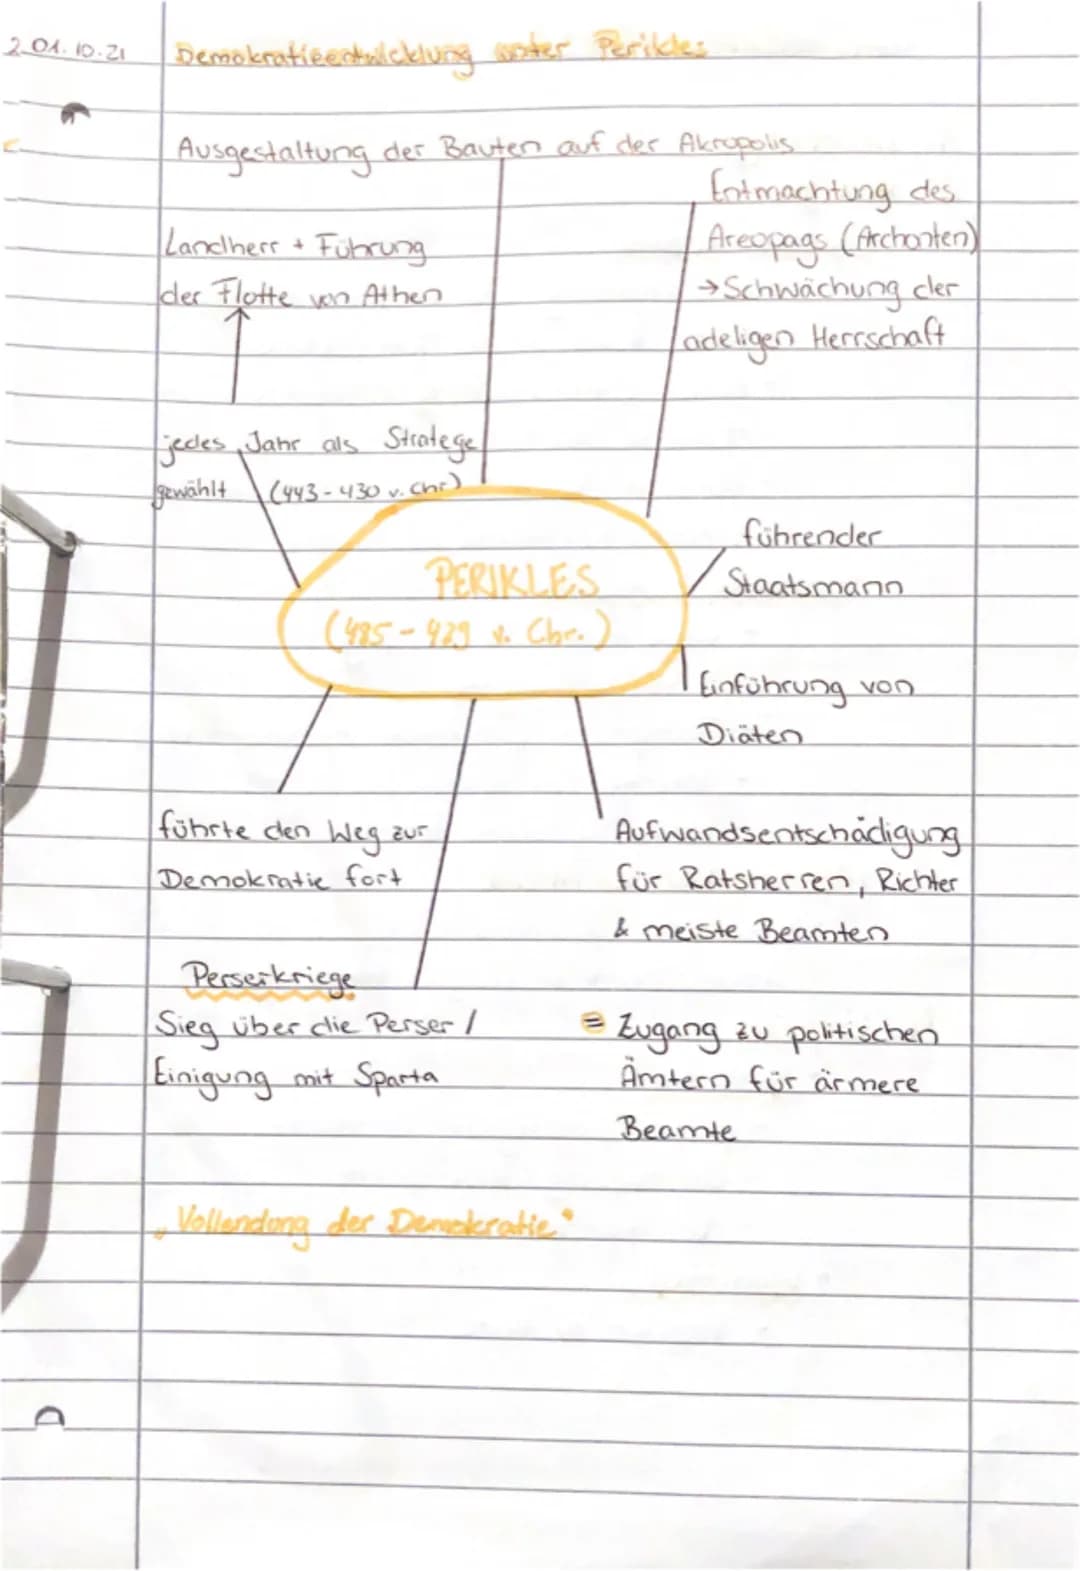 2 01.10.21
Demokratieentwicklung unter Perikles
Ausgestaltung der Bauten auf der Akropolis
Entmachtung des
Areopags (Archonten)
→ Schwächung der
adeligen Herrschaft
Landherr + Führung
der Flotte von Athen
jedes Jahr als Stratege
gewählt (443-430 v. Chr.)
führender
Staatsmann
PERIKLES
(485-429 v. Chr.)
Einführung von
Diäten
führte den Weg zur
Demokratie fort
Aufwandsentschädigung
für Ratsherren, Richter
& meiste Beamten
Perserkriege
Sieg über die Perser /
Einigung mit Sparta
= Zugang zu politischen
Ämtern für ärmere
Beamte
„Vollendung der Demokratie"